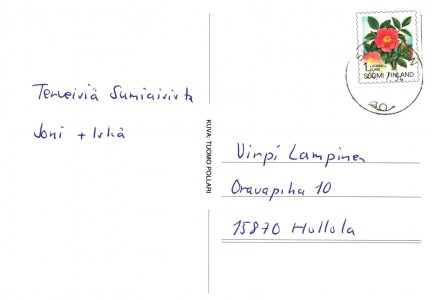 1
LUOKKA
KLASS
SUOMI FINLAND
Terveisiä Sumiaisista
Joni +
KUVA: TUOMO POLLARI
Virpi Lampinen
Oravapiha 10
15870 Hollola